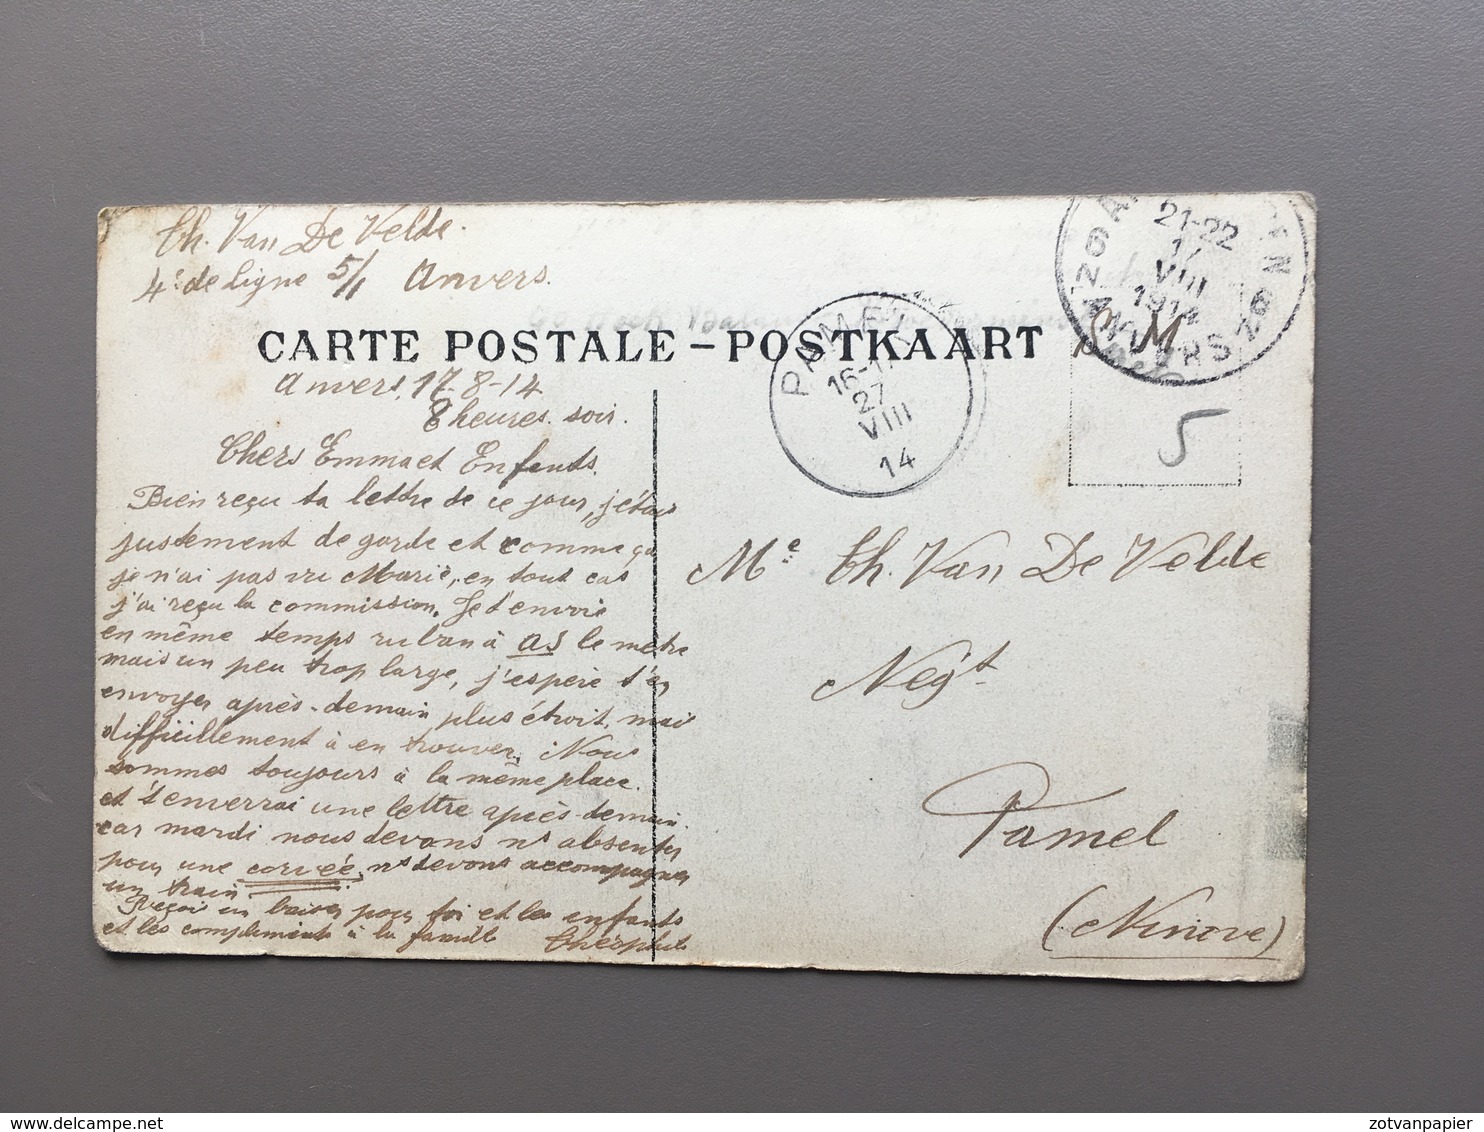 Th. Van De Velde.
4e de ligne 5/1 Anvers.
CARTE POSTALE – POSTKAART
Anvers, 17-8-14
8 heures. soir.
Chers Emma et Enfants.
Bien reçu ta lettre de ce jour, j'étais
justement de garde et comme ça
je n'ai pas vu Marie, en tout cas
j'ai reçu la commission. Je t'envoie
en même temps ruban à 0,25 le mètre
mais un peu trop large, j'espère t'en
envoyer après-demain plus étroit, mais
difficillement à en trouver. Nous
sommes toujours à la même place.
et t'enverrai une lettre après-demain
car mardi nous devons ns absenter
pour une corvée, ns devons accompagner
un train.
Reçois un baiser pour toi et les enfants
et les compliments à la famille Théophile
PAMEL
16-17
27
VIII
14
21-22
17
VIII
1914
ANVERS
S. M.
5
Me Th. Van De Velde
Négt
Pamel
(Ninove)
delcampe.net
zotvanpapier